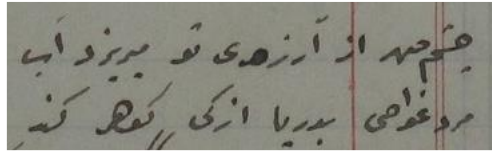 چشم من از آرزوی تو میریزد آب
مرد غواص بدریا از کی گوهر کند